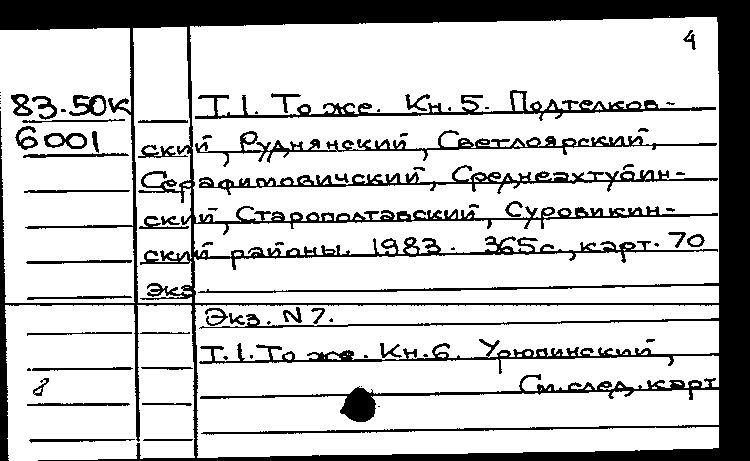 4
83.50К Т.1. То же. Кн.5. Подтелков-
6001 ский, Руднянский, Светлоярский,
Серафимовичский, Среднеахтубин-
ский, Старополтавский, Суровикин-
ский районы. 1983. 365с., карт. 70
экз
Экз. N 7.
Т.1. То же. Кн.6. Урюпинский,
8 См. след. карт